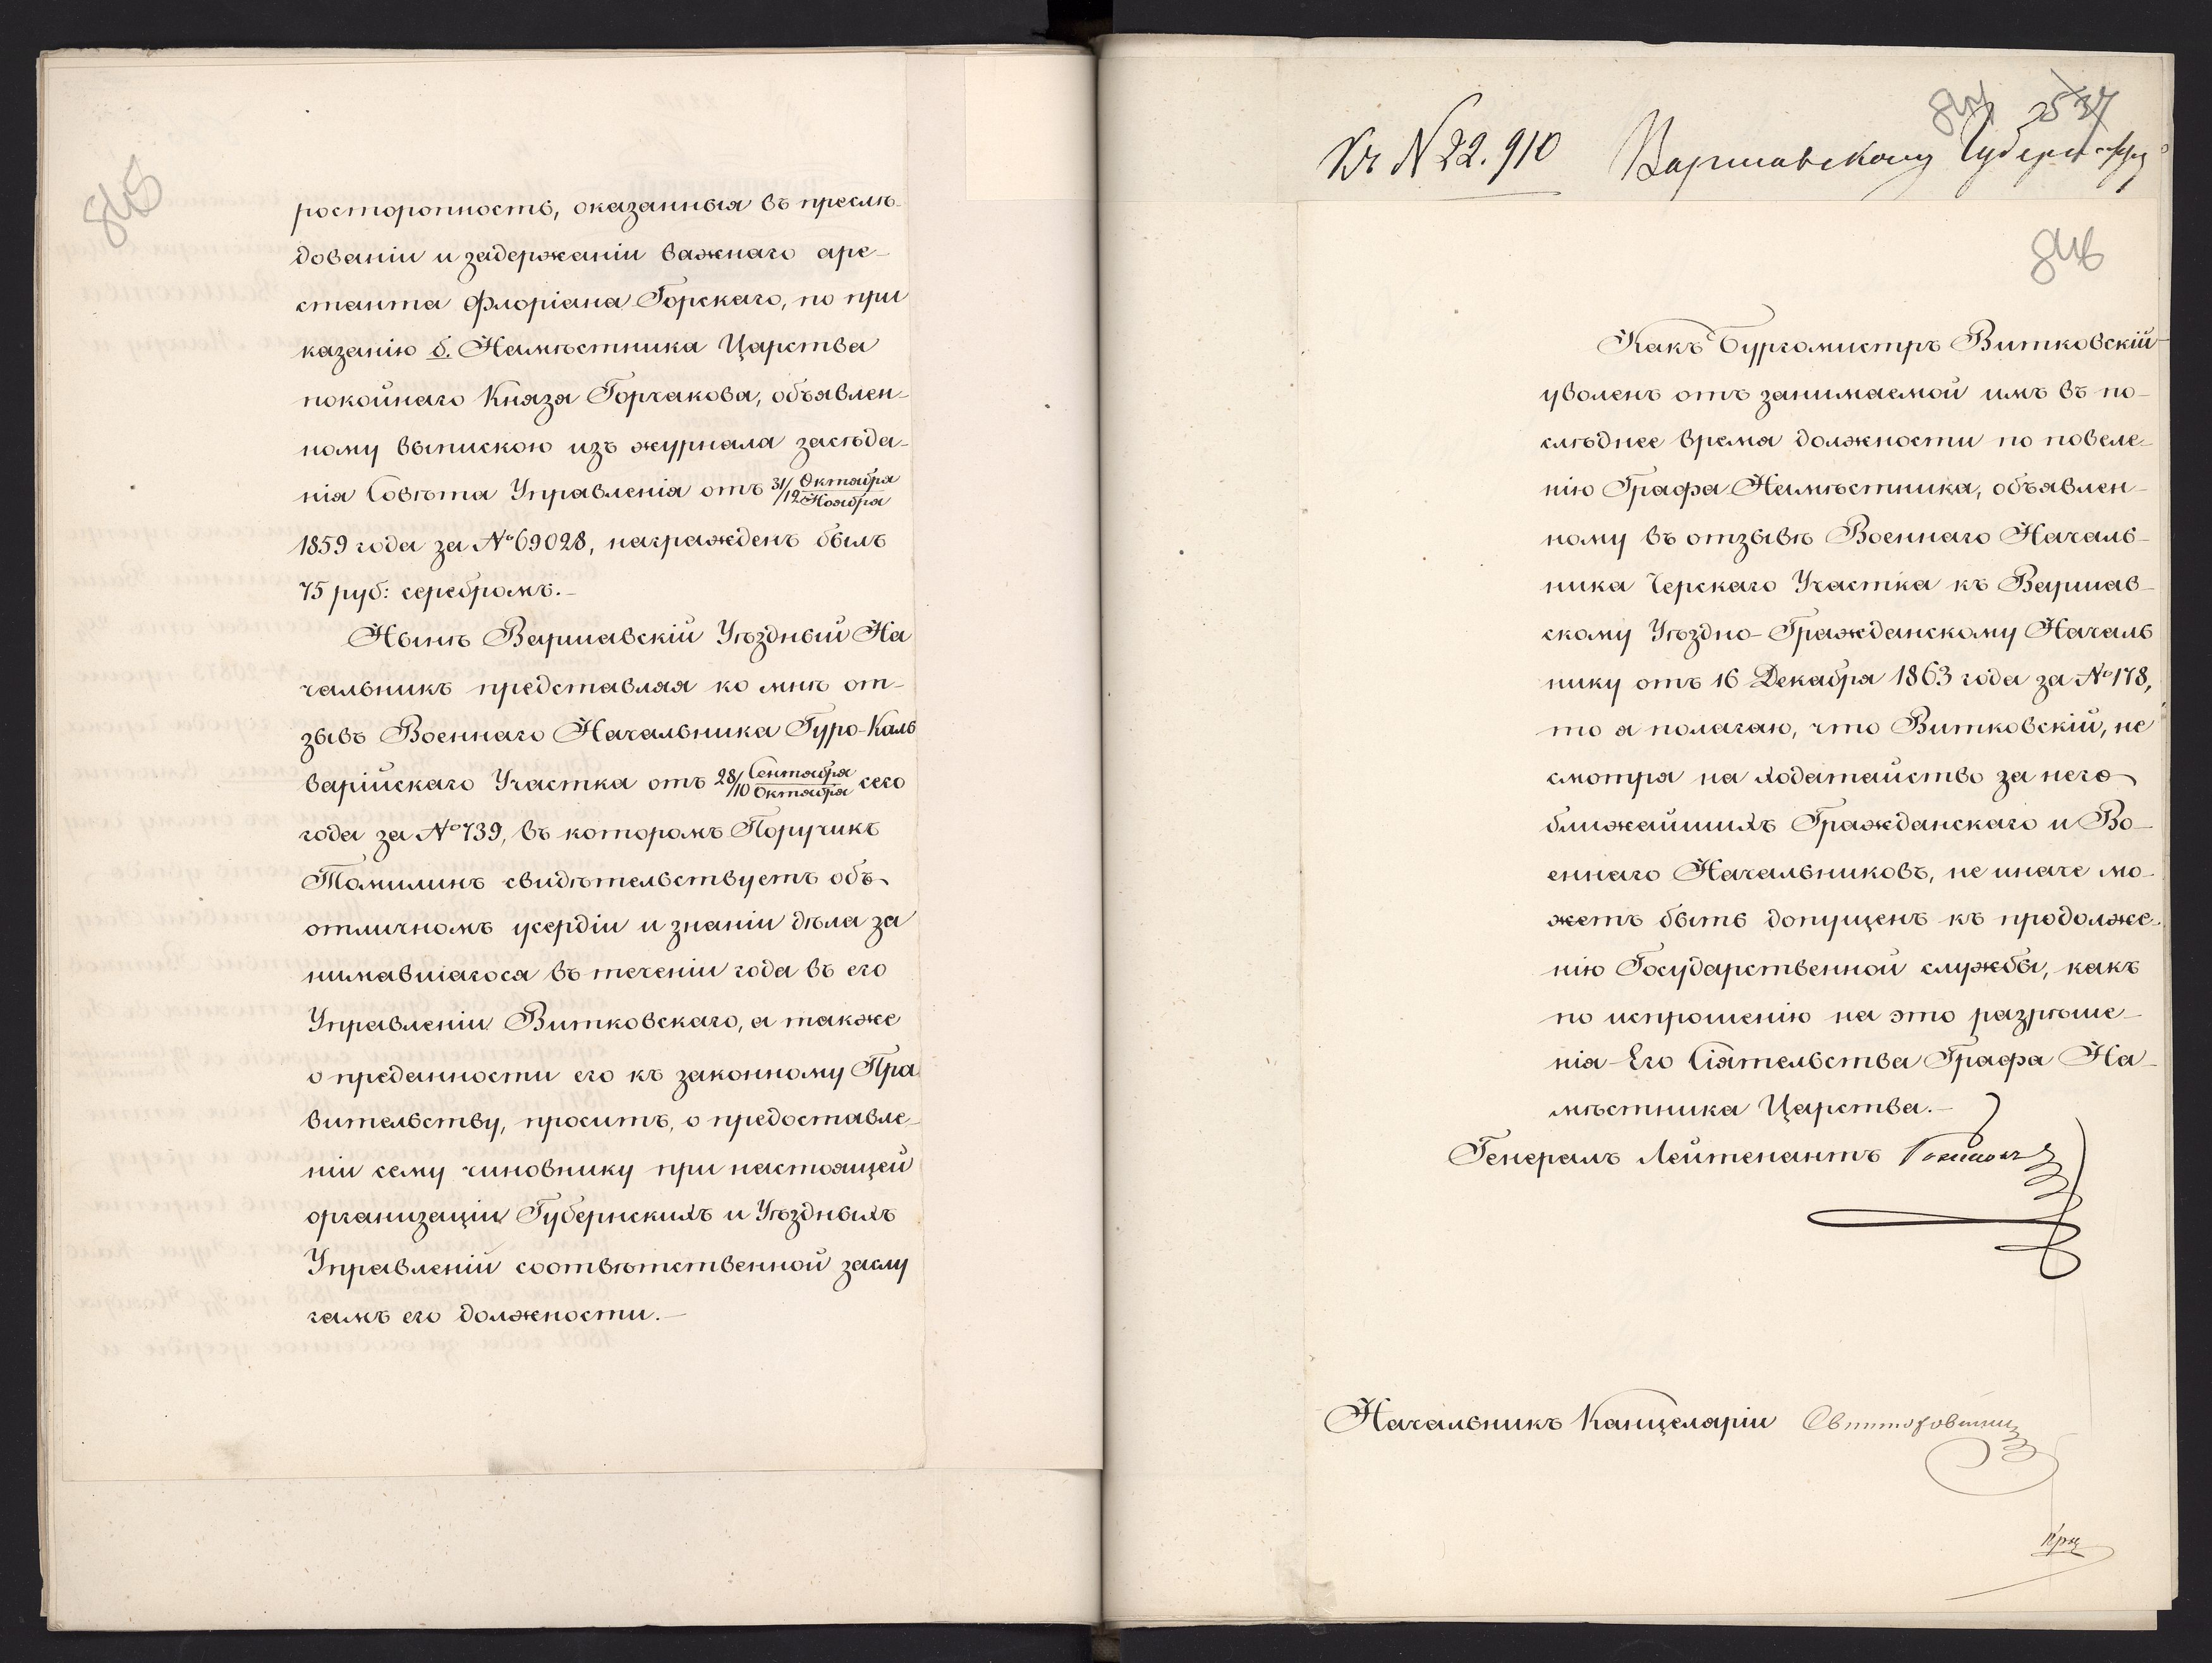 845
росторопность, оказанныя въ преслѣ-
дованіи и задержаніи важнаго аре-
станта Флоріана Горскаго, по при
казанію б. Намѣстника Царства
покойнаго Князя Горчакова, объявлен-
ному выпискою изъ журнала засѣда-
нія Совѣта Управленія отъ 31/12 Октября/Ноября
1859 года за № 69028, награжденъ былъ
75 руб: серебромъ.-
Нынѣ Варшавскій Уѣздный На
чальникъ представляя ко мнѣ от-
зывъ Военнаго Начальника Гуро-Каль
варійскаго Участка отъ 28/10 Сентября/Октября сего
года за № 739, въ которомъ Поручикъ
Томилинъ свидѣтельствуетъ объ
отличномъ усердіи и знаніи дѣла за
нимавшагося въ теченіи года въ его
Управленіи Витковскаго, а также
о преданности его къ законному Пра
вительству, проситъ, о предоставле-
ніи сему чиновнику при настоящей
организаціи Губернскихъ и Уѣздныхъ
Управленій соотвѣтственной заслу
гамъ его должности.-
25 37
Къ № 22.910 Варшавскому
846
Какъ Бургомистръ Витковскій
уволенъ отъ занимаемой имъ въ по-
слѣднее время должности по повеле-
нію Графа Намѣстника, объявлен-
ному въ отзывѣ Военнаго Началь-
ника Черскаго Участка къ Варшав-
скому Уѣздно-Гражданскому Началь
нику отъ 16 Декабря 1863 года за № 178,
то я полагаю, что Витковскій, не
смотря на ходатайство за него
ближайшихъ Гражданскаго и Во-
еннаго Начальниковъ, не иначе мо-
жетъ быть допущенъ къ продолже-
нію Государственной службы, какъ
по испрошенію на это разрѣше-
нія Его Сіятельства Графа На-
мѣстника Царства.-
Генералъ Лейтенантъ
Начальникъ Канцеляріи